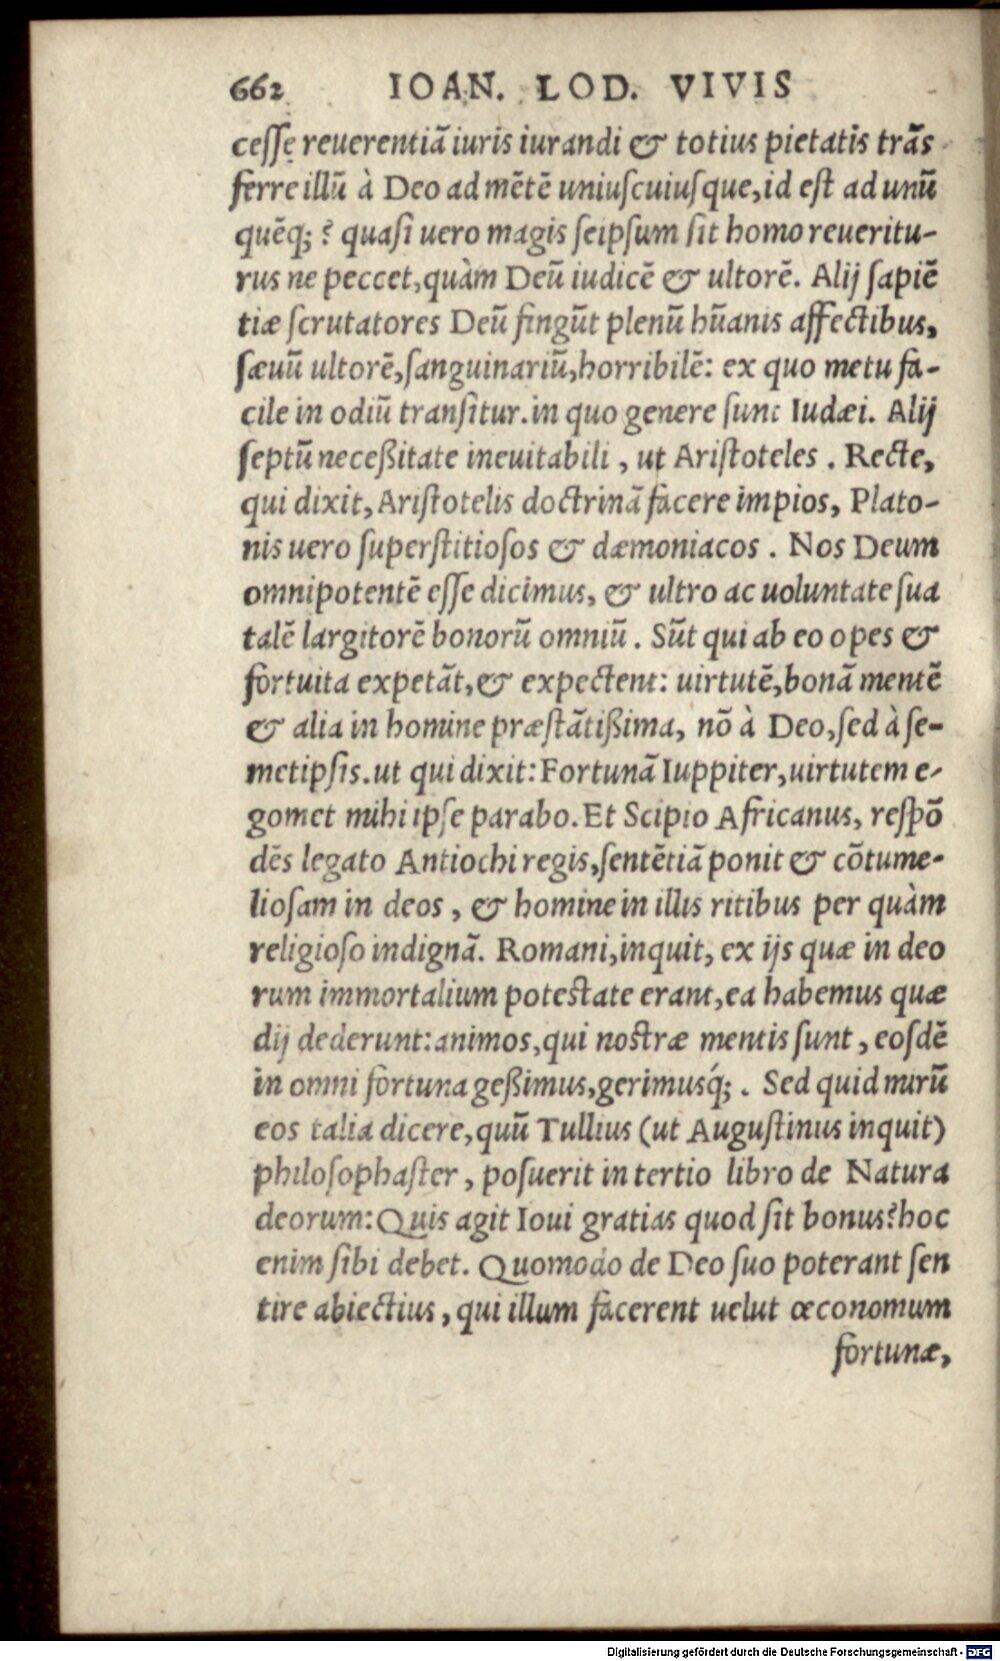 662 IOAN. LOD. VIVIS
ceſſe reuerentiã iuris iurandi & totius pietatis trãs
ferre illũ à Deo ad mẽtẽ uniuſcuiuſque, id eſt ad unũ
quẽq; ? quaſi uero magis ſeipſum ſit homo reueritu-
rus ne peccet, quàm Deũ iudicẽ & ultorẽ. Alij ſapiẽ
tiæ ſcrutatores Deũ fingũt plenũ hũanis affectibus,
ſæuũ ultorẽ, ſanguinariũ, horribilẽ: ex quo metu fa-
cile in odiũ tranſitur. in quo genere ſunt Iudæi. Alij
ſeptũ neceßitate ineuitabili , ut Ariſtoteles . Recte,
qui dixit, Ariſtotelis doctrinã facere impios, Plato-
nis uero ſuperſtitioſos & dæmoniacos . Nos Deum
omnipotentẽ eſſe dicimus, & ultro ac uoluntate ſua
talẽ largitorẽ bonorũ omniũ . Sũt qui ab eo opes &
fortuita expetãt, & expectent: uirtutẽ, bonã mentẽ
& alia in homine præſtãtißima, nõ à Deo, ſed à ſe-
metipſis. ut qui dixit: Fortunã Iuppiter, uirtutem e-
gomet mihi ipſe parabo. Et Scipio Africanus, reſpõ
dẽs legato Antiochi regis, ſentẽtiã ponit & cõtume-
lioſam in deos , & homine in illis ritibus per quàm
religioſo indignã. Romani, inquit, ex ijs quæ in deo
rum immortalium poteſtate erant, ea habemus quæ
dij dederunt: animos, qui noſtræ mentis ſunt , eoſdẽ
in omni fortuna geßimus, gerimusq́; . Sed quid mirũ
eos talia dicere, quũ Tullius (ut Auguſtinus inquit)
philoſophaſter , poſuerit in tertio libro de Natura
deorum: Quis agit Ioui gratias quod ſit bonus? hoc
enim ſibi debet. Quomodo de Deo ſuo poterant ſen
tire abiectius , qui illum facerent uelut œconomum
fortunæ,
Digitalisierung gefördert durch die Deutsche Forschungsgemeinschaft - DFG